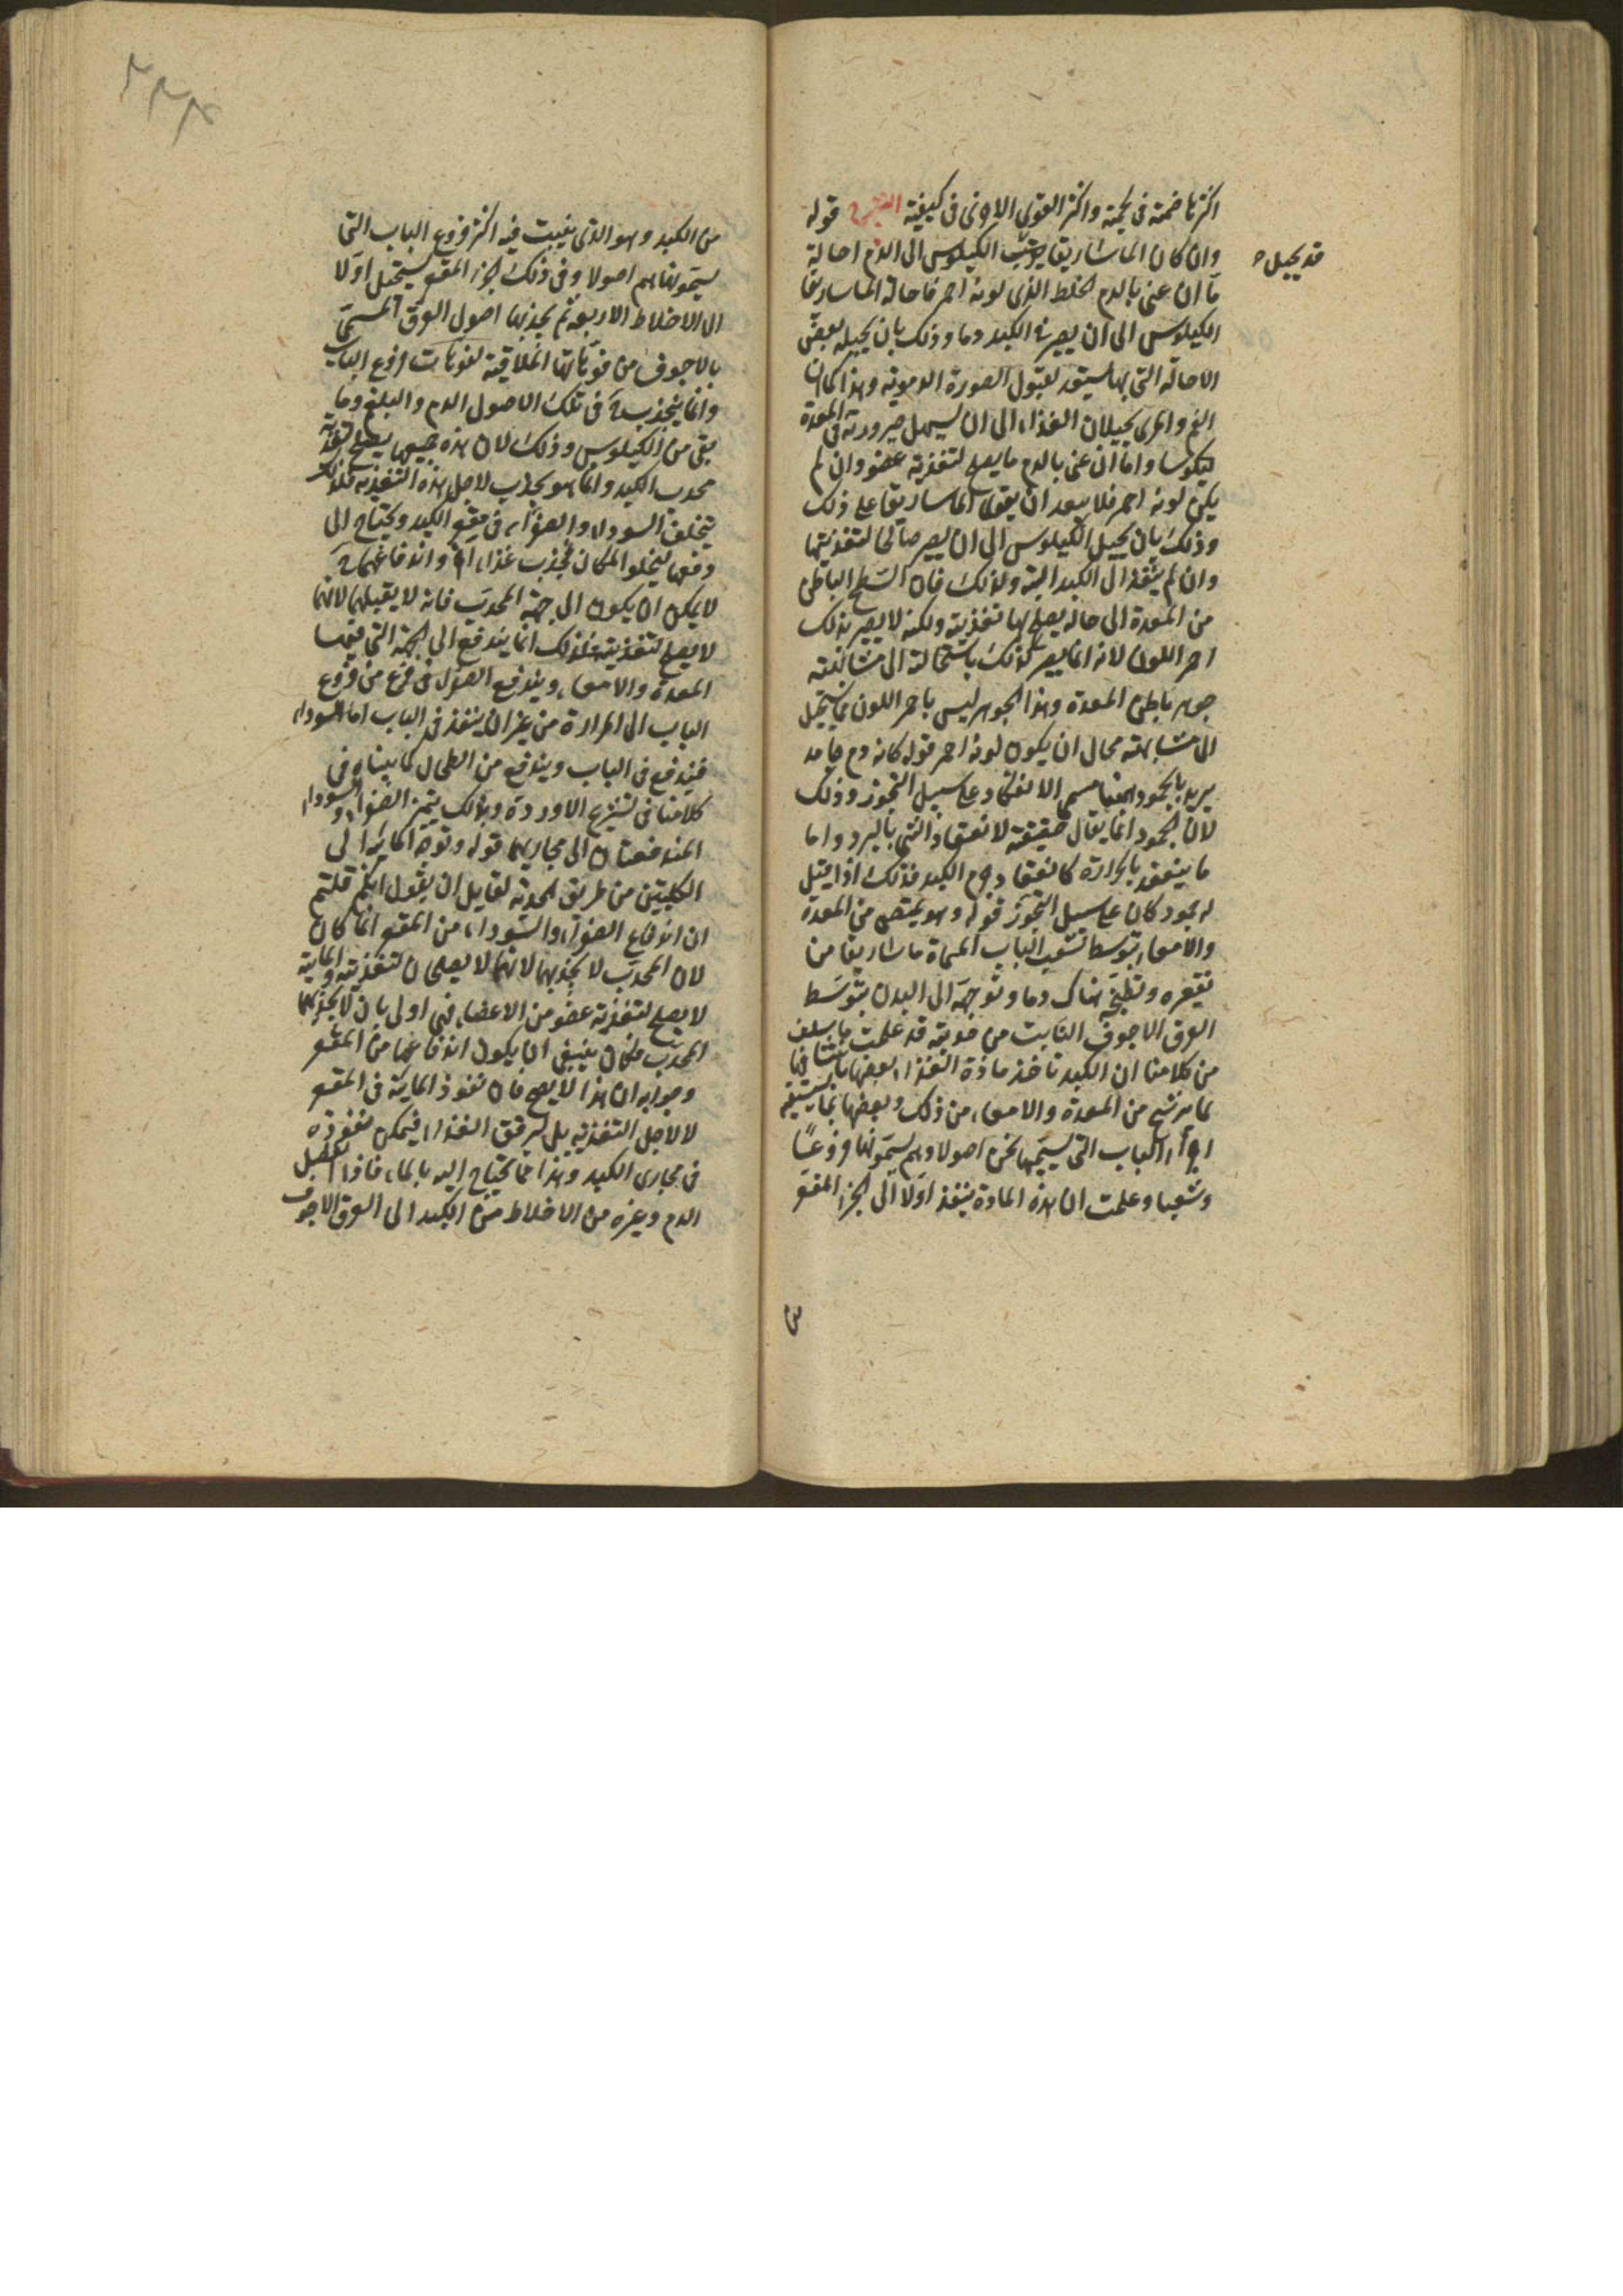 اكثرنا ضمته فى لحمته واكثر القوى الاولى فى كيفيته الشرح قوله
وان كان الماساريقا الكيلوس الى الدم احالة
قد يحيل
ما ان عنى بالدم الخلط الذى لونه احمر فاحالة الماساريقا
الكيلوس الى ان يصير فى الكبد دما وذلك بان يحيله بعض
الاحالة التى بها يستعد لقبول الصورة الدموية وهذا كما ان
الفم والمرى يحيلان الغذاء الى ان يسهل صيرورته فى المعدة
كيلوسا واما ان عنى بالدم ما يصلح لتغذية عضو وان لم
يكن لونه احمر فلا يبعد ان يقوى الماساريقا على ذلك
وذلك بان يحيل الكيلوس الى ان يصير صالحا لتغذيتها
وان لم ينفذ الى الكبد البتة ولذلك فان السطح الباطن
من المعدة الى حاله يصلح بها تغذيته ولكنه لا يصير بذلك
احمر اللون لانه انما يصير كذلك باستحالته الى مشاكلته
جوهر باطن المعدة وهذا الجوهر ليس باحمر اللون فما يستحيل
الى مشابهته محال ان يكون لونه احمر قوله كانه دم جامد
يريد بالجمود هنا مسمى الانعقاد على سبيل التجوز وذلك
لان الجمود انما يقال حقيقة لانعقاد الشى بالبرد واما
ما ينعقد بالحرارة كانعقاد دم الكبد فذلك اذا قيل
له جمود كان على سبيل التجوز قوله وهو يمتص من المعدة
والامعاء بتوسط تشعب الباب المسماة ماساريقا من
تقعيره وتطبخه هناك دما وتوجهه الى البدن بتوسط
العرق الاجوف النابت من حدبته قد علمت ما سلف
من كلامنا ان الكبد تاخذ مادة الغذاء بعضها
مما يرشح من المعدة والامعاء من ذلك وبعضها
اجزاء الباب التى يسميها نحن اصولا وهم يسمونها فروعا
وشعبا وعلمت ان هذه المادة ينفذ اولا الى الجزء المقعر
من
٢٣٤
من الكبد وهو الذى ينبت فيه اكثر فروع الباب التى
يسمونها هم اصولا وفى ذلك الجزء المقعر يستحيل اولا
الى الاخلاط الاربعة ثم يجذبها اصول العرق المسمى
بالاجوف من فوهاتها الملاقية لفوهات فروع الباب
وانما ينجذب فى تلك الاصول الدم والبلغم وما
بقى من الكيلوس وذلك لان هذه جميعها يصلح لتغذية
محدب الكبد وانما هو يجذب لاجل هذه التغذية فلذلك
يتخلف السوداء والصفراء فى مقعر الكبد ويحتاج الى
دفعها ليخلو المكان لجذب غذاء اخر واندفاعهما
لا يمكن ان يكون الى جهة المحدب فانه لا يقبلهما لانهما
لا يصلح لتغذيته فلذلك انما يندفع الى الجهة التى فيها
المعدة والامعاء ويندفع الصفراء فى فرع من فروع
الباب الى المرارة من غير ان ينفذ فى الباب اما السوداء
فيندفع فى الباب ويندفع من الطحال كما بيناه فى
كلامنا فى تشريح الاوردة وبذلك يتميز الصفراء والسوداء
المندفعتان الى مجاريهما قوله وتوجه المائية الى
الكليتين من طريق الحدبة لقايل ان يقول انكم قلتم
ان اندفاع الصفراء والسوداء من المقعر انما كان
لان المحدب لا يجذبهما لانهما لا يصلحان لتغذيته والمائية
لا يصلح لتغذية عضو من الاعضاء فهى اولى بان لا يجذبها
المحدب فكان ينبغى ان يكون اندفاعها من المقعر
وجوابه ان هذا لا يصح فان نفوذ المائية فى المقعر
لا لاجل التغذية بل ليرقق الغذاء فيمكن نفوذه
فى مجارى الكبد وهذا مما يحتاج اليه بالماء فاذا انفصل
الدم وغيره من الاخلاط من الكبد الى العرق الاجوف